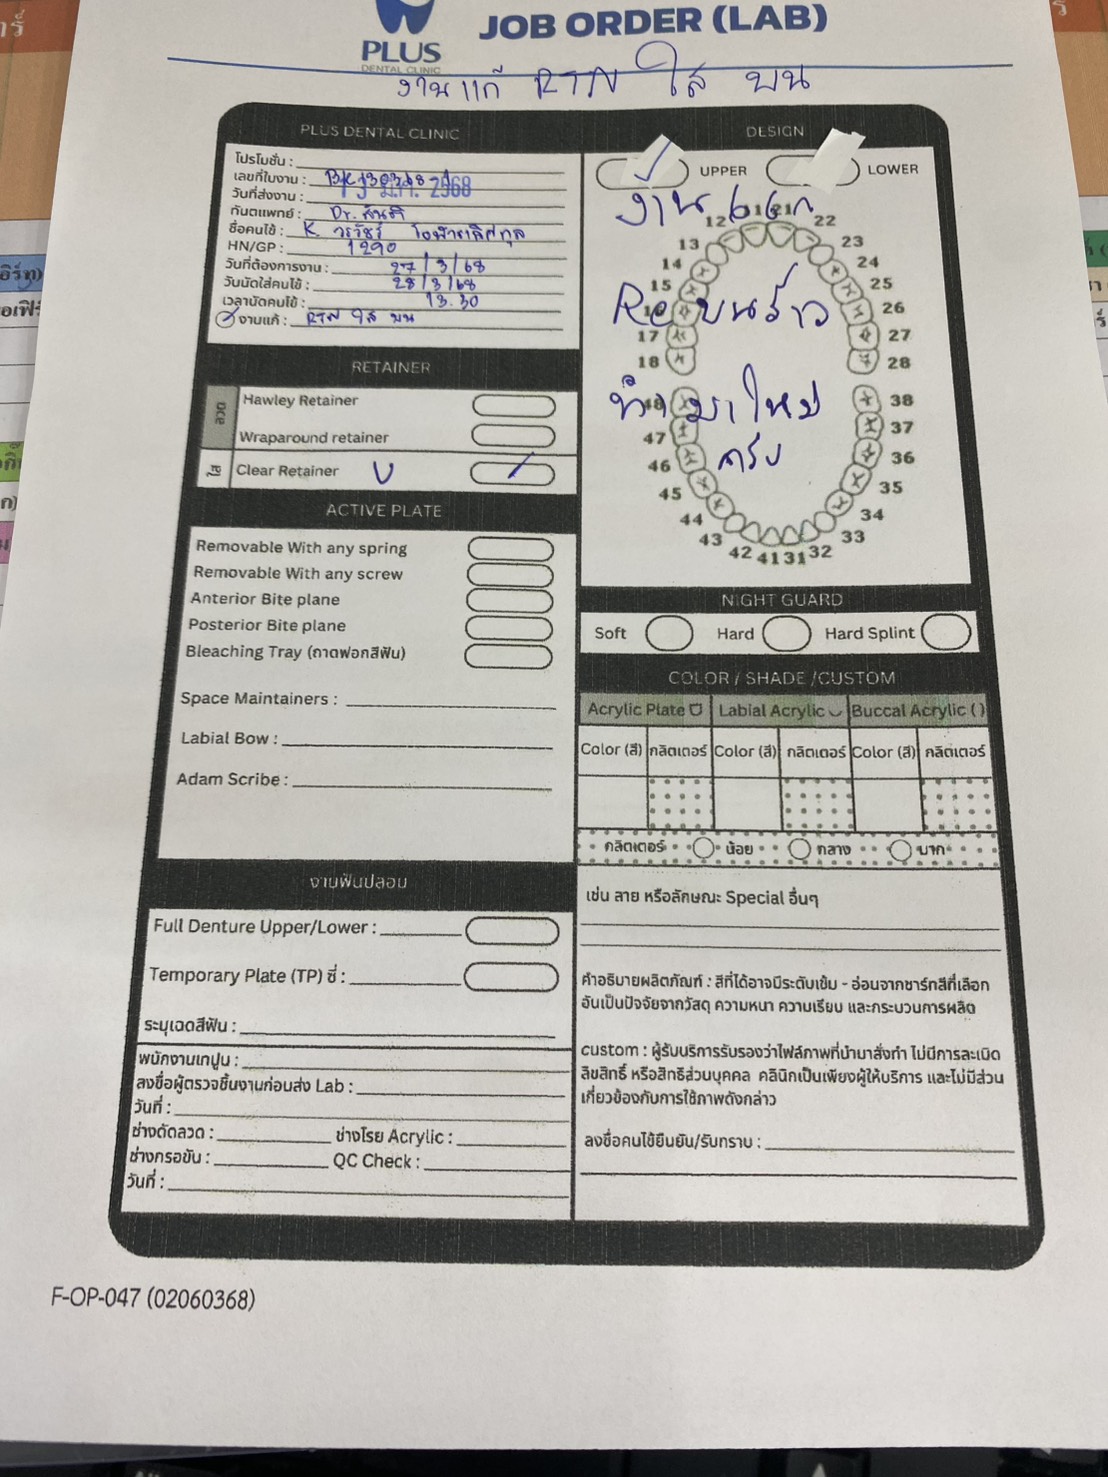 PLUS
DENTAL CLINIC
JOB ORDER (LAB)
งานแก้ RTN ใส บน
PLUS DENTAL CLINIC
โปรโมชั่น :
เลขที่ใบงาน :
วันที่ส่งงาน : 2568
ทันตแพทย์ : Dr.
ชื่อคนไข้ : K.
HN/GP : 1290
วันที่ต้องการงาน : 27/3/68
วันนัดใส่คนไข้ : 28/3/68
เวลานัดคนไข้ : 13.30
งานแก้ : RTN ใส บน
RETAINER
Hawley Retainer
Wraparound retainer
ลวด
ใส
Clear Retainer U
ACTIVE PLATE
Removable With any spring
Removable With any screw
Anterior Bite plane
Posterior Bite plane
Bleaching Tray (ถาดฟอกสีฟัน)
Space Maintainers :
Labial Bow :
Adam Scribe :
งานฟันปลอม
Full Denture Upper/Lower :
Temporary Plate (TP) ซี่ :
ระบุเฉดสีฟัน :
พนักงานเทปูน :
ลงชื่อผู้ตรวจชิ้นงานก่อนส่ง Lab :
วันที่ :
ช่างดัดลวด : ช่างโรย Acrylic :
ช่างกรอขัน : QC Check :
วันที่ :
DESIGN
UPPER LOWER
งานแตก
Re บนร้าว
ทำมาใหม่
ครับ
12 11 21 22
13 23
14 24
15 25
16 26
17 27
18 28
48 38
47 37
46 36
45 35
44 34
43 33
42 41 31 32
NIGHT GUARD
Soft Hard Hard Splint
COLOR / SHADE /CUSTOM
Acrylic Plate Labial Acrylic Buccal Acrylic ( )
Color (สี) กลิตเตอร์ Color (สี) กลิตเตอร์ Color (สี) กลิตเตอร์
กลิตเตอร์ น้อย กลาง มาก
เช่น ลาย หรือลักษณะ Special อื่นๆ
คำอธิบายผลิตภัณฑ์ : สีที่ได้อาจมีระดับเข้ม - อ่อนจากชาร์ทสีที่เลือก
อันเป็นปัจจัยจากวัสดุ ความหนา ความเรียบ และกระบวนการผลิต
custom : ผู้รับบริการรับรองว่าไฟล์ภาพที่นำมาสั่งทำ ไม่มีการละเมิด
ลิขสิทธิ์ หรือสิทธิส่วนบุคคล คลินิกเป็นเพียงผู้ให้บริการ และไม่มีส่วน
เกี่ยวข้องกับการใช้ภาพดังกล่าว
ลงชื่อคนไข้ยืนยัน/รับทราบ :
F-OP-047 (02060368)